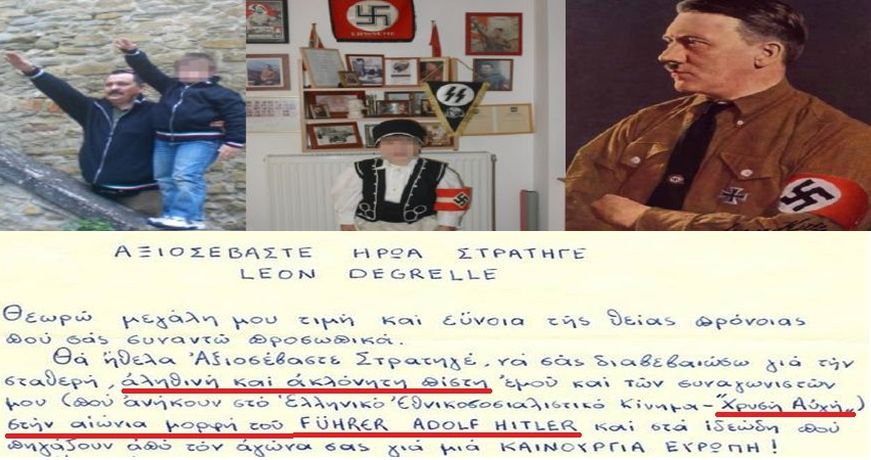 ΑΞΙΟΣΕΒΑΣΤΕ ΗΡΩΑ ΣΤΡΑΤΗΓΕ
LEON DEGRELLE
Θεωρώ μεγάλη μου τιμή και εὔνοια τῆς θείας πρόνοιας
πού σᾶς συναντῶ προσωπικά.
Θά ἤθελα Ἀξιοσέβαστε Στρατηγέ, νά σᾶς διαβεβαιώσω γιά τήν
σταθερή, ἀληθινή καί ἀκλόνητη πίστη ἐμοῦ καί τῶν συναγωνιστῶν
μου (πού ἀνήκουν στό Ἑλληνικό Ἐθνικοσοσιαλιστικό Κίνημα - "Χρυσή Αὐγή")
στήν αἰώνια μορφή τοῦ FÜHRER ADOLF HITLER καί στά ἰδεώδη πού
πηγάζουν ἀπό τόν ἀγώνα σας γιά μιά ΚΑΙΝΟΥΡΓΙΑ ΕΥΡΩΠΗ!